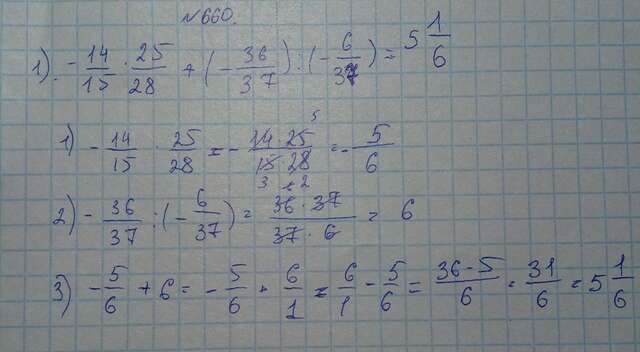 №660.
1). -14/15 · 25/28 + (-36/37) : (-6/37) = 5 1/6
1) -14/15 · 25/28 = -14·25/15·28 = -5/6
5
3 2
2) -36/37 : (-6/37) = 36·37/37·6 = 6
3) -5/6 + 6 = -5/6 + 6/1 = 6/1 - 5/6 = 36-5/6 = 31/6 = 5 1/6